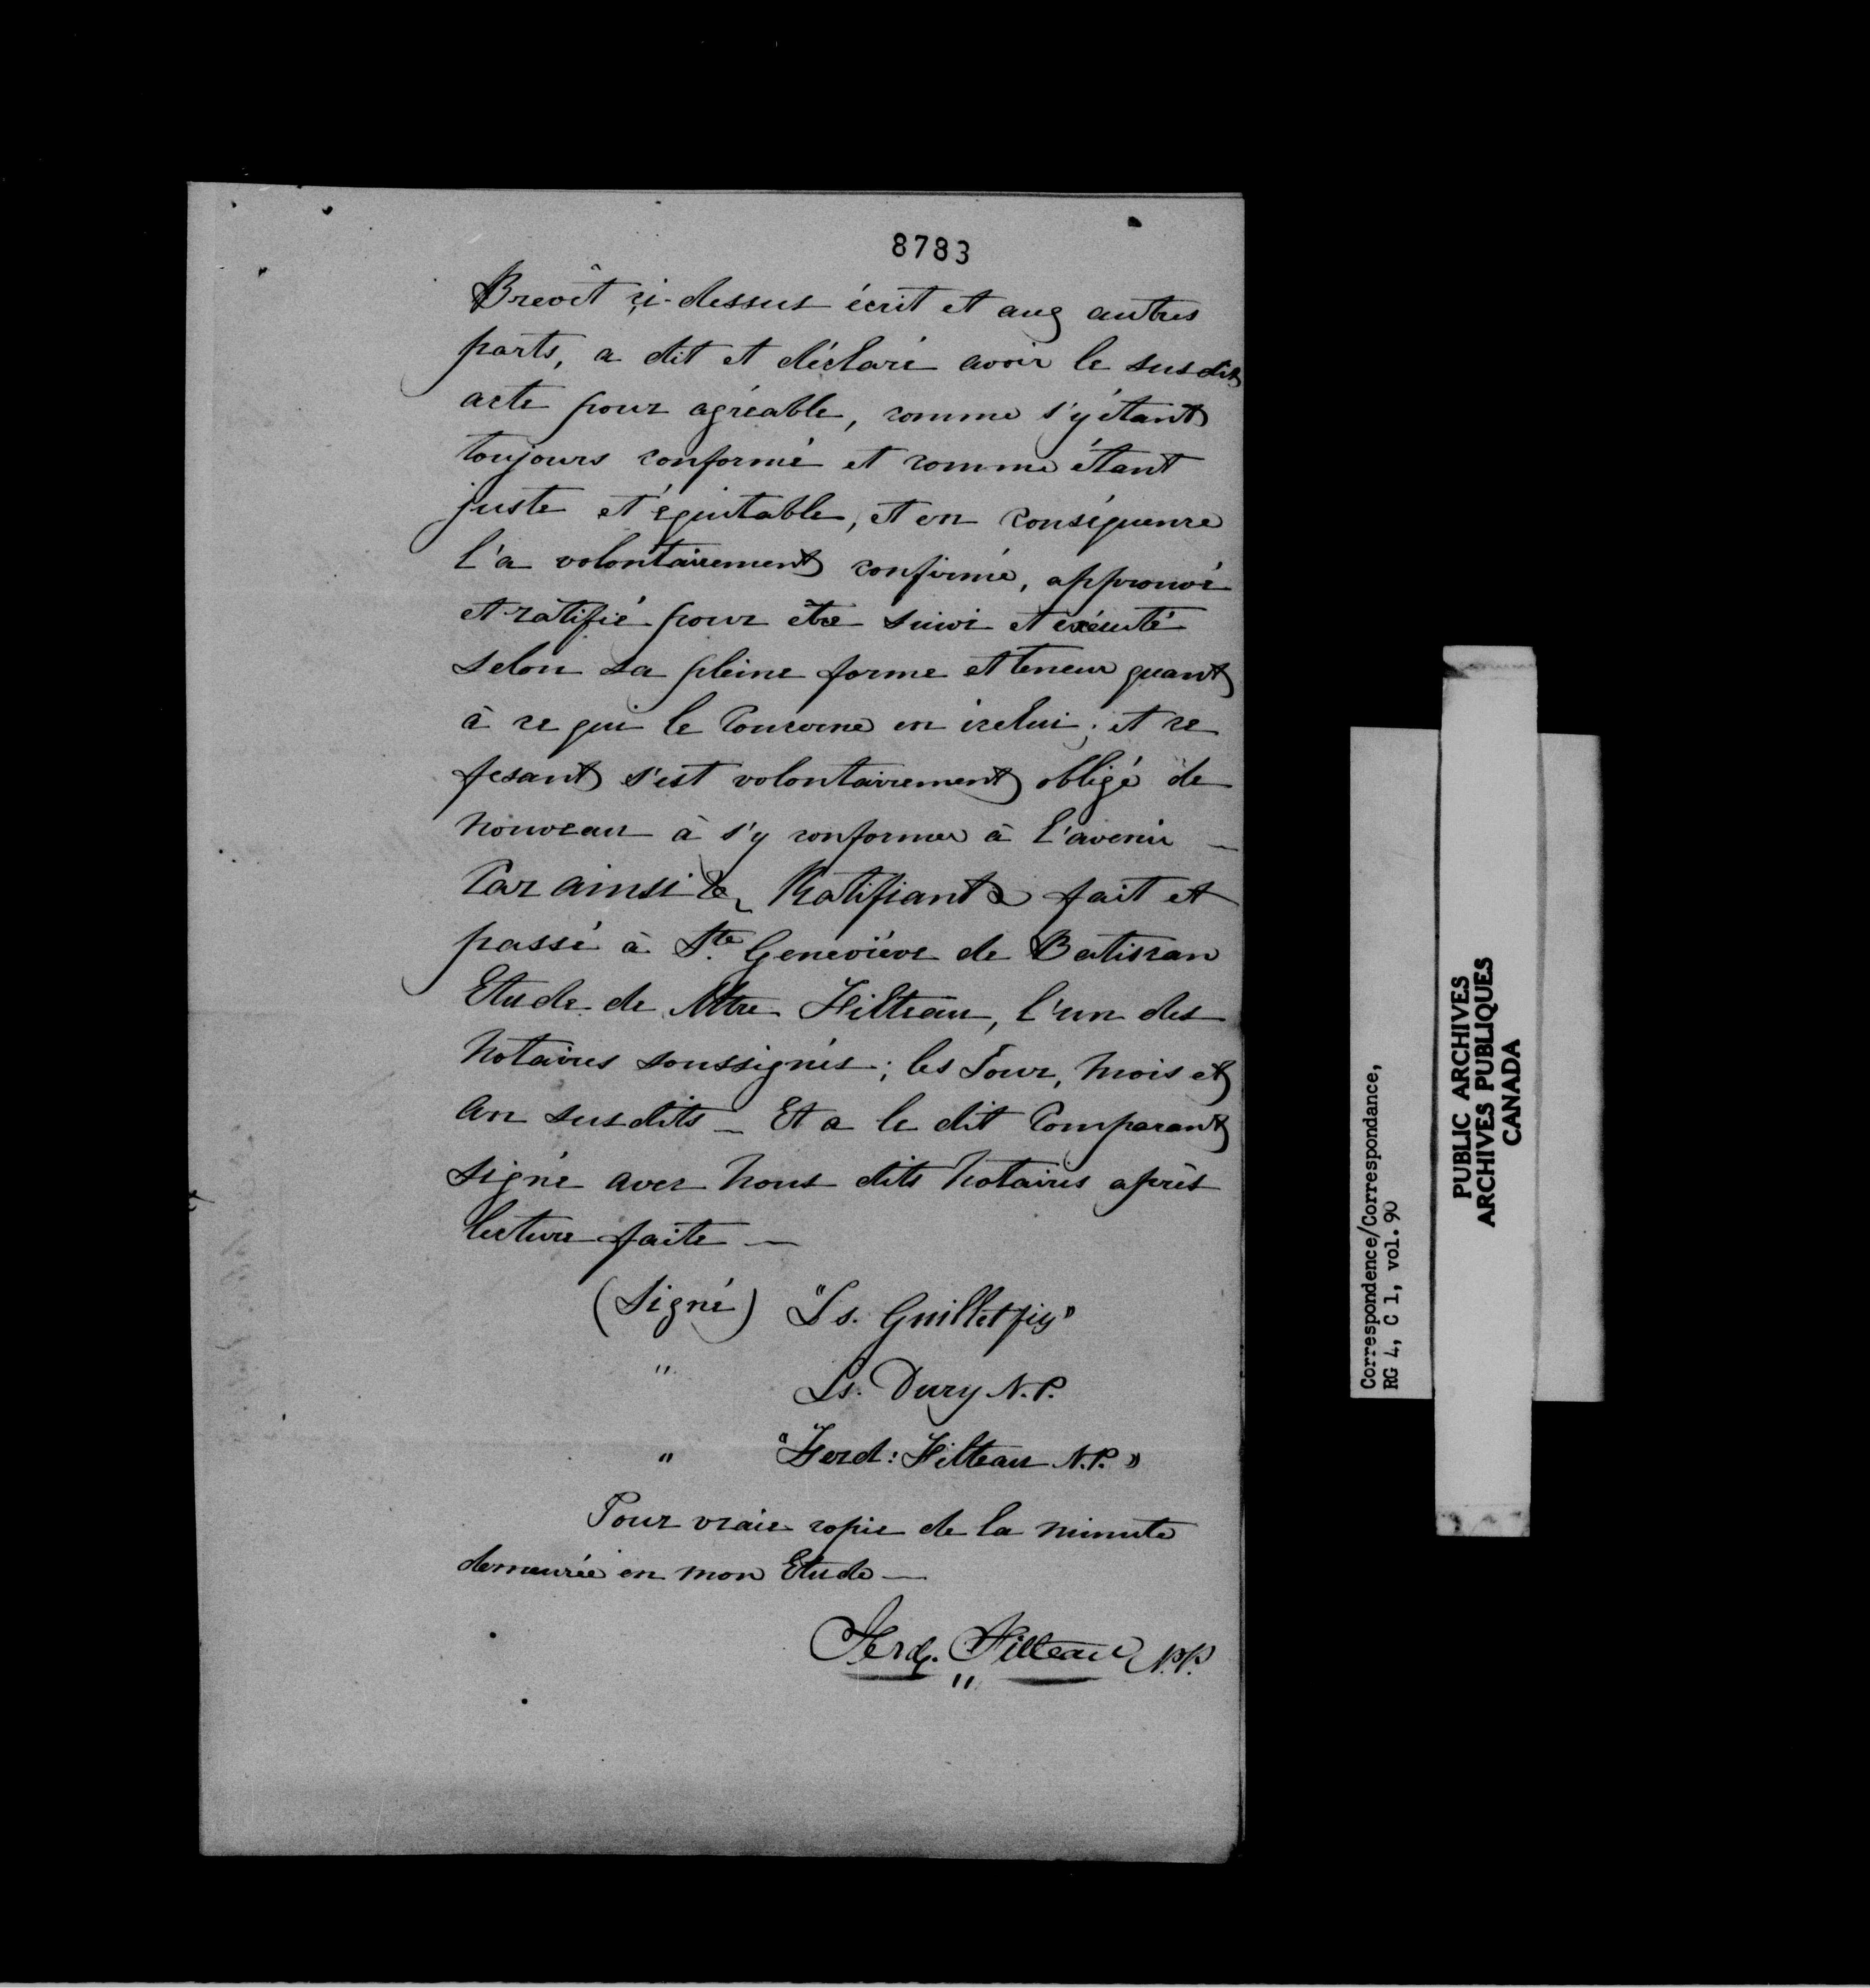 8783
Brevêt ci-dessus écrit et aux autres
parts, a dit et déclaré avoir le susdit
acte pour agréable, comme s'y étant
toujours conformé et comme étant
juste et équitable, et en conséquence
l'a volontairement confirmé, approuvé
et ratifié pour être suivi et exécuté
selon sa pleine forme et teneur quant
à ce qui le Concerne en icelui; et ce
fesant s'est volontairement obligé de
nouveau à s'y conformer à l'avenir —
Car ainsi &c Ratifiant &c fait et
passé à Ste. Geneviève de Batiscan
Etude de Mtre Filteau, l'un des
Notaires soussignés; les Jour, mois et
an susdits — Et a le dit Comparant
signé avec nous dits Notaires après
lecture faite —
(Signé) "Ls. Guillet fils"
" Ls. Dury N.P.
" "Ferd: Filteau N.P."
Pour vraie copie de la minute
demeurée en mon Etude —
Ferd. Filteau N.P.
Correspondence/Correspondance,
RG 4, C 1, vol. 90
PUBLIC ARCHIVES
ARCHIVES PUBLIQUES
CANADA